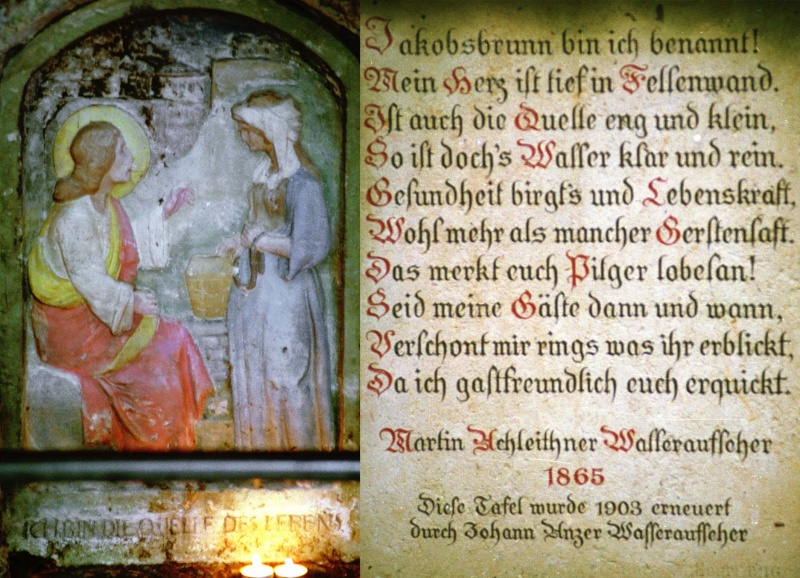 ICH BIN DIE QUELLE DES LEBENS
Jakobsbrunn bin ich benannt!
Mein Herz ist tief in Felsenwand.
Ist auch die Quelle eng und klein,
So ist doch's Wasser klar und rein.
Gesundheit birgt's und Lebenskraft,
Wohl mehr als mancher Gerstensaft.
Das merkt euch Pilger lobesan!
Seid meine Gäste dann und wann,
Verschont mir rings was ihr erblickt,
Da ich gastfreundlich euch erquickt.
Martin Achleithner Wasseraufseher
1865
Diese Tafel wurde 1903 erneuert
durch Johann Anzer Wasseraufseher